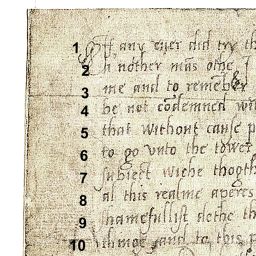 1 If any euer did try th
2 n nother mãs othe I
3 me and to remẽber
4 be not cõdemned wit
5 that without cause p
6 to go vnto the tower
7 subiect wiche thogth
8 al this realme aperes
9 shamefullyst dethe th
10 thinge and to this p